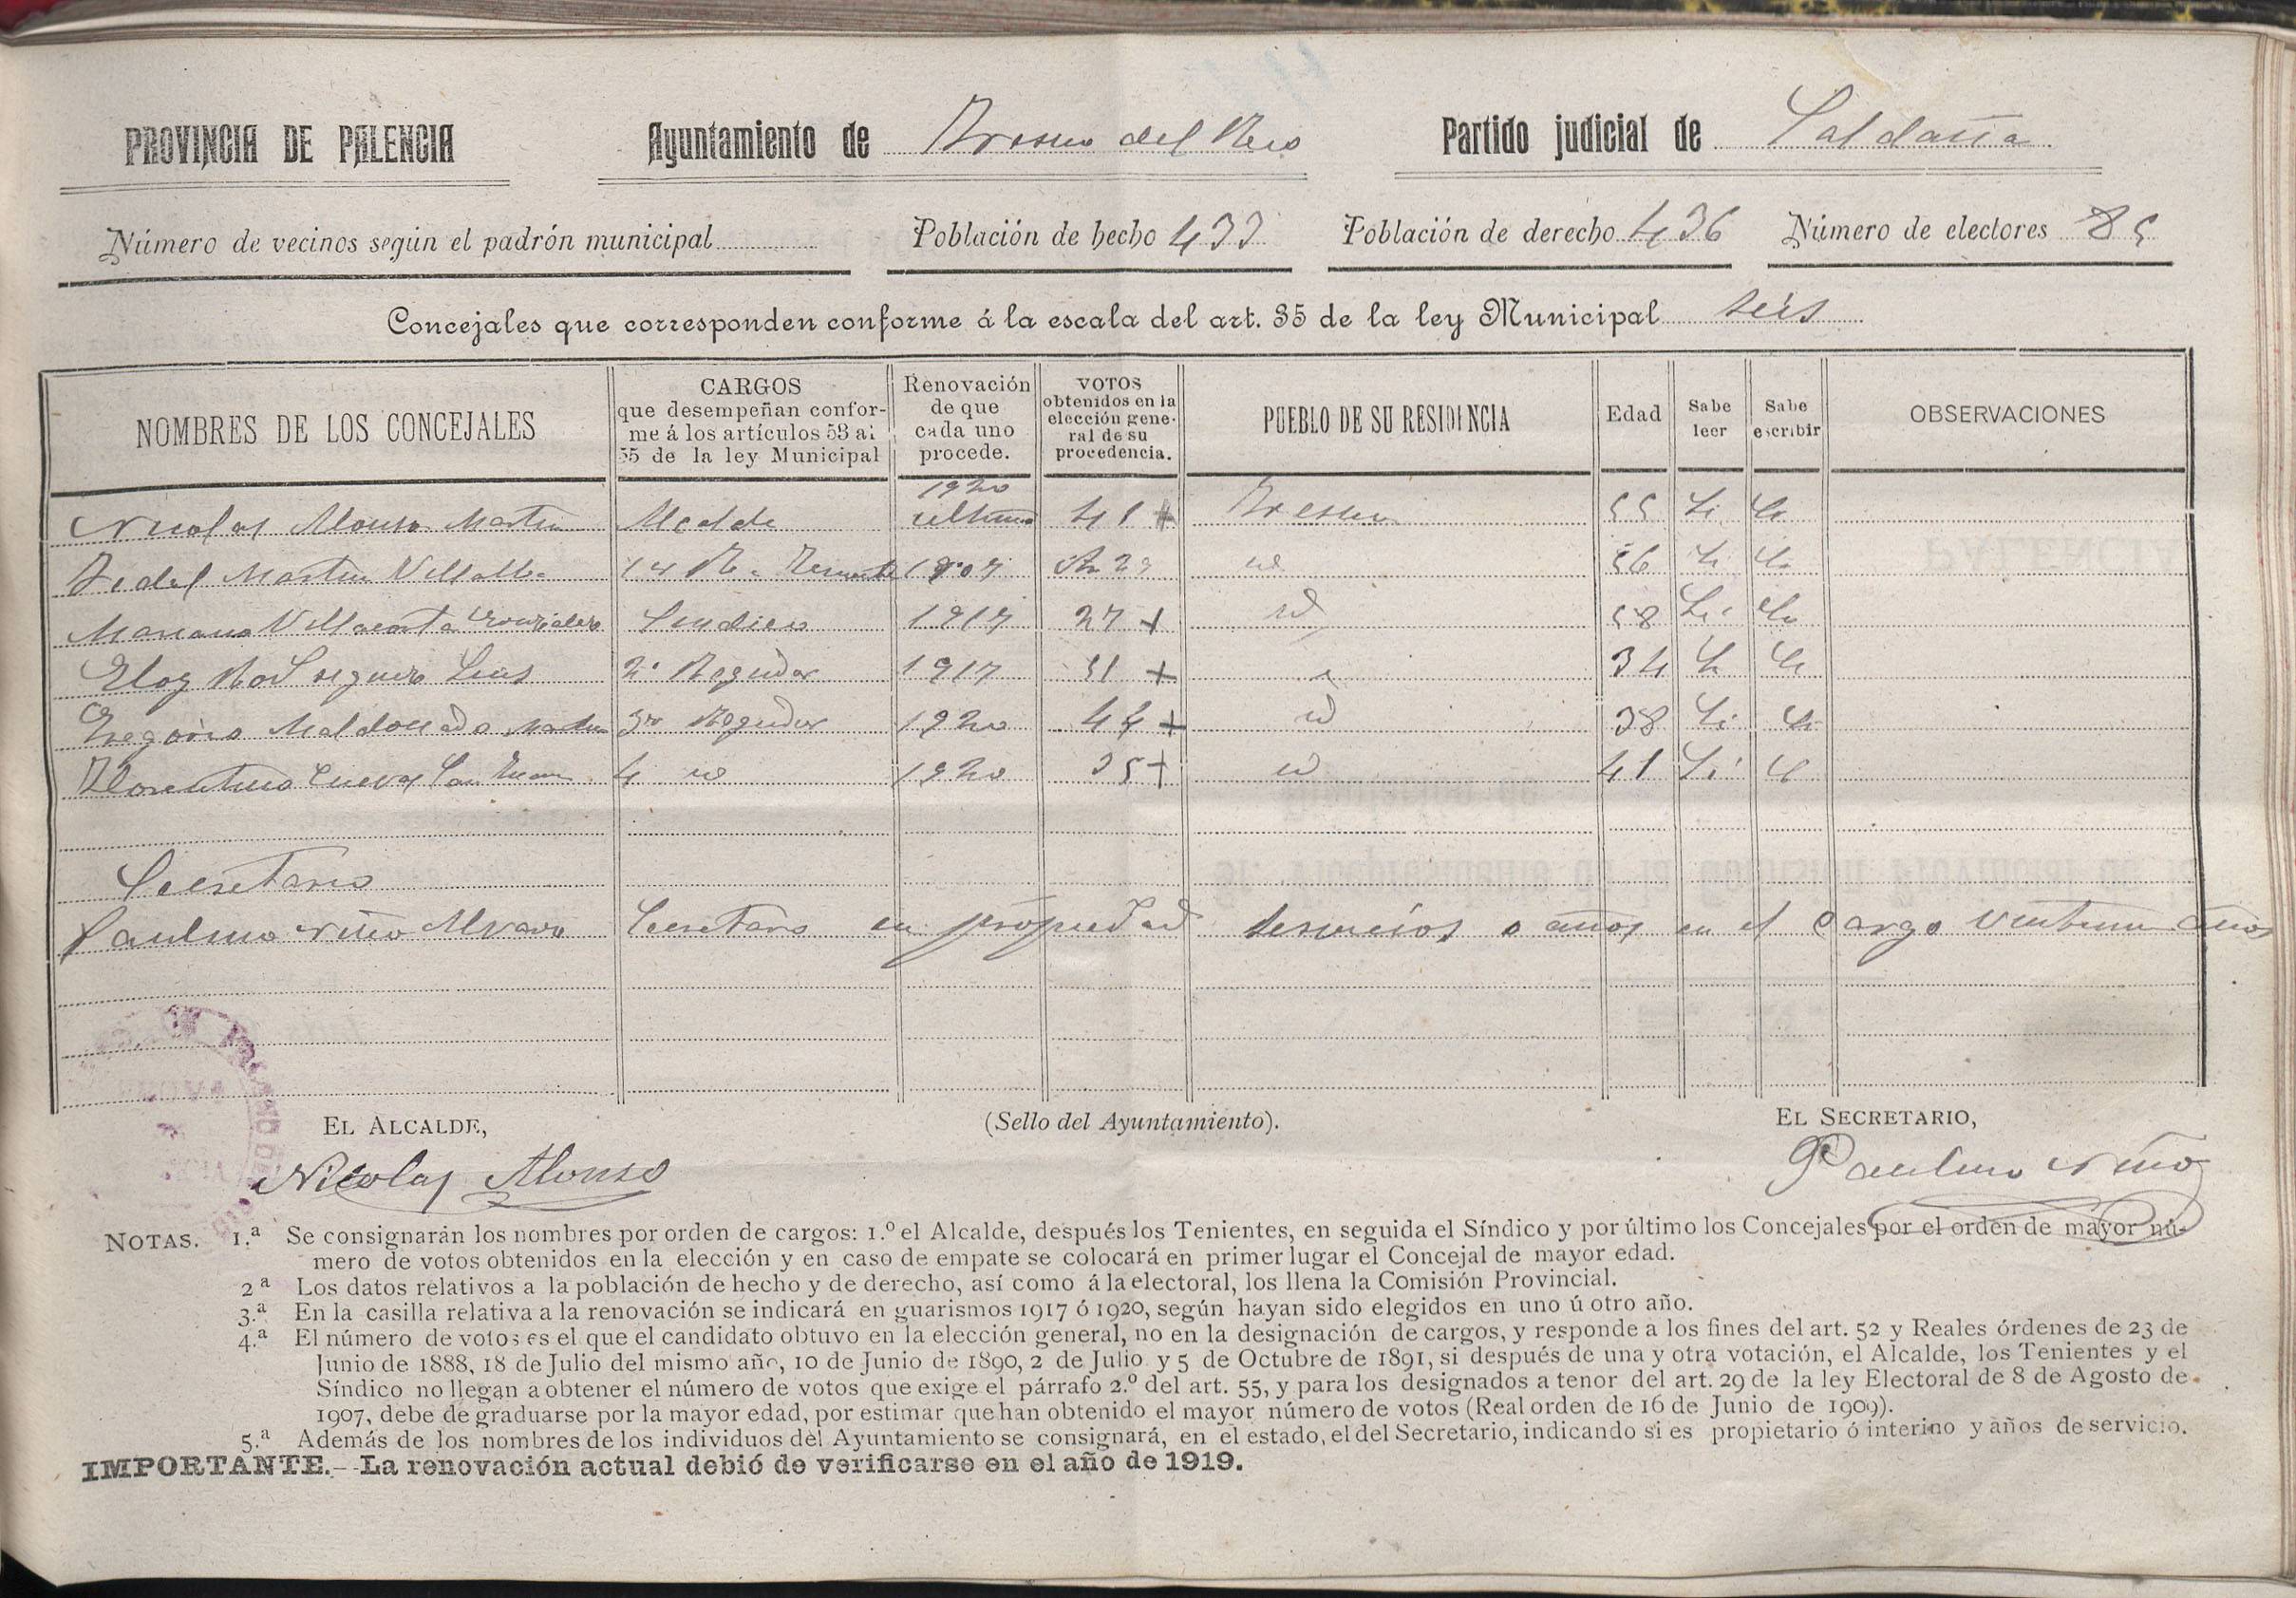 PROVINCIA DE PALENCIA Ayuntamiento de Fresno del Rio Partido judicial de Saldaña
Número de vecinos según el padrón municipal Población de hecho 433 Población de derecho 436 Número de electores 85
Concejales que corresponden conforme á la escala del art. 35 de la ley Municipal seis
NOMBRES DE LOS CONCEJALES
CARGOS
que desempeñan confor-
me á los artículos 53 al
55 de la ley Municipal
Renovación
de que
cada uno
procede.
VOTOS
obtenidos en la
elección gene-
ral de su
procedencia.
PUEBLO DE SU RESIDENCIA
Edad
Sabe
leer
Sabe
escribir
OBSERVACIONES
1920
Nicolas Alonso Martin Alcalde ultima 41 + Fresno 55 Si Si
Fidel Martin Villalba 1er Teniente 29 id 56 Si Si
Mariano Villacorta Gonzalez Sindico 1917 27 + id 58 Si Si
Eloy 2º Regidor 1917 31 + 34 Si Si
Gregorio Maldonado Martin 3º Regidor 1920 44 + id 38 Si Si
Florentino Cuevas San Juan 4 id 1920 35 + id 41 Si Si
Secretario
Paulino Niño Alvaro Secretario en propiedad servicios o años en el cargo años
EL ALCALDE, (Sello del Ayuntamiento). EL SECRETARIO,
Nicolas Alonso Paulino Niño
NOTAS. 1.ª Se consignarán los nombres por orden de cargos: 1.º el Alcalde, después los Tenientes, en seguida el Síndico y por último los Concejales por el orden de mayor nú-
mero de votos obtenidos en la elección y en caso de empate se colocará en primer lugar el Concejal de mayor edad.
2ª Los datos relativos a la población de hecho y de derecho, así como á la electoral, los llena la Comisión Provincial.
3.ª En la casilla relativa a la renovación se indicará en guarismos 1917 ó 1920, según hayan sido elegidos en uno ú otro año.
4.ª El número de votos es el que el candidato obtuvo en la elección general, no en la designación de cargos, y responde a los fines del art. 52 y Reales órdenes de 23 de
Junio de 1888, 18 de Julio del mismo año, 10 de Junio de 1890, 2 de Julio y 5 de Octubre de 1891, si después de una y otra votación, el Alcalde, los Tenientes y el
Síndico no llegan a obtener el número de votos que exige el párrafo 2.º del art. 55, y para los designados a tenor del art. 29 de la ley Electoral de 8 de Agosto de
1907, debe de graduarse por la mayor edad, por estimar que han obtenido el mayor número de votos (Real orden de 16 de Junio de 1909).
5.ª Además de los nombres de los individuos del Ayuntamiento se consignará, en el estado, el del Secretario, indicando si es propietario ó interino y años de servicio.
IMPORTANTE.--La renovación actual debió de verificarse en el año de 1919.